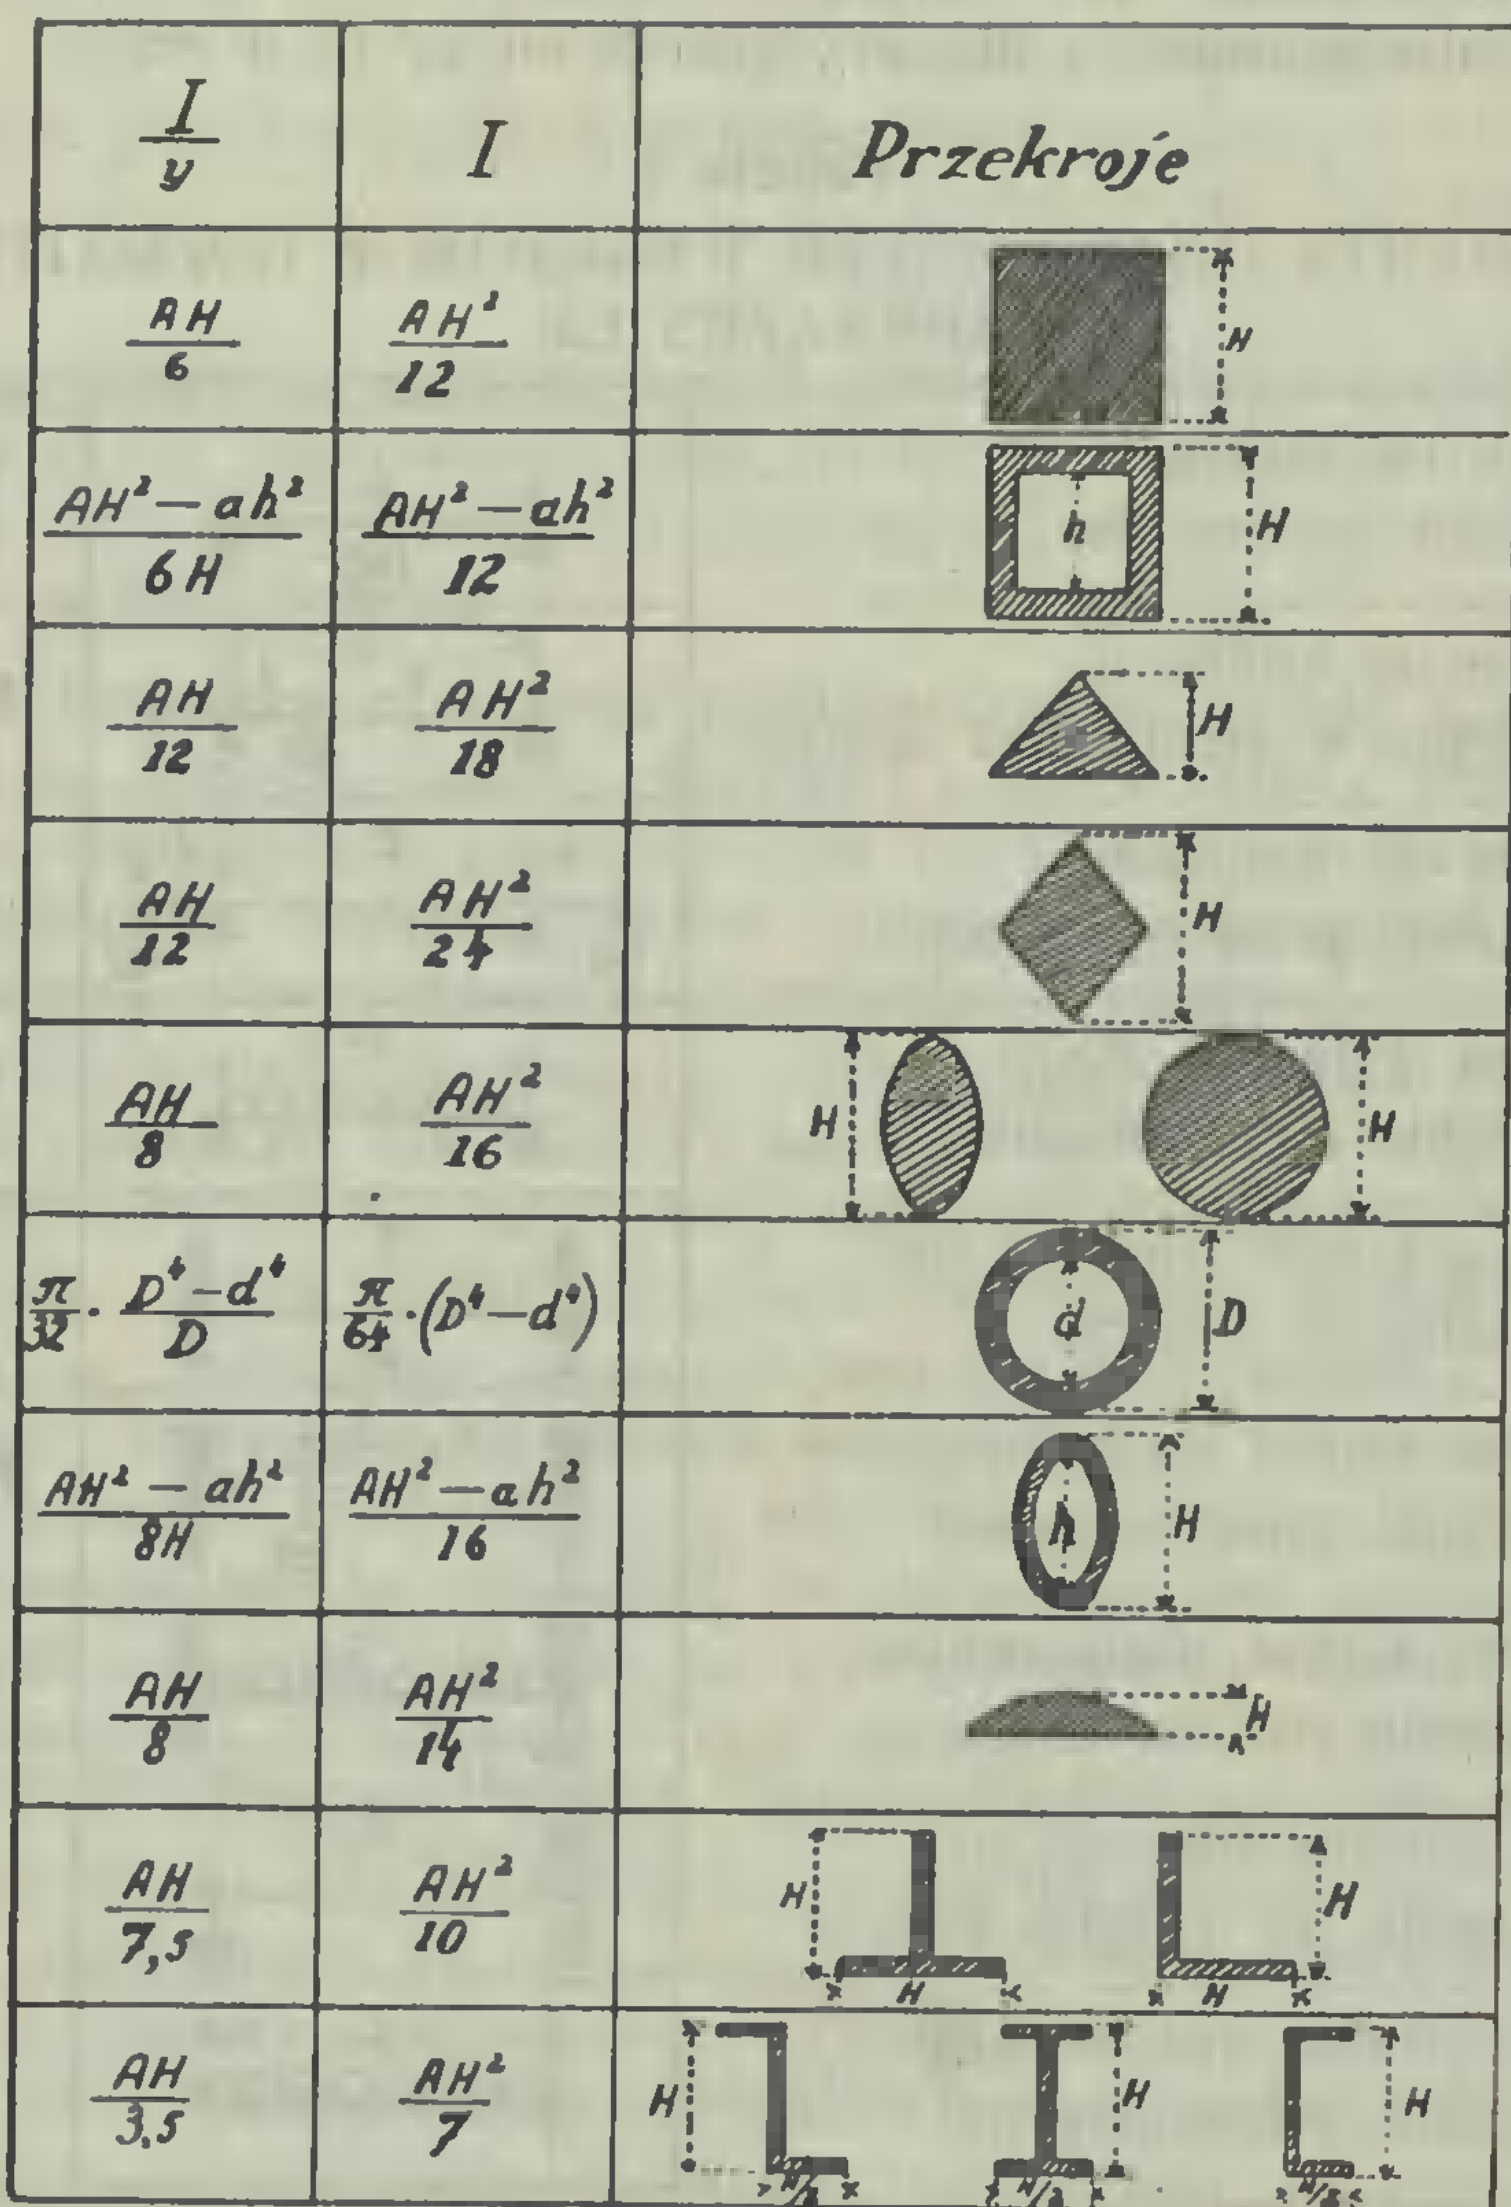 I/y I Przekroje
AH/6 AH²/12 H
AH² — ah²/6H AH² — ah²/12 h H
AH/12 AH²/18 H
AH/12 AH²/24 H
AH/8 AH²/16 H H
π/32 · D⁴ — d⁴/D π/64 · (D⁴ — d⁴) d D
AH² — ah²/8H AH² — ah²/16 h H
AH/8 AH²/14 H
AH/7,5 AH²/10 H H H H
AH/3,5 AH²/7 H H/2 H H/2 H H/2